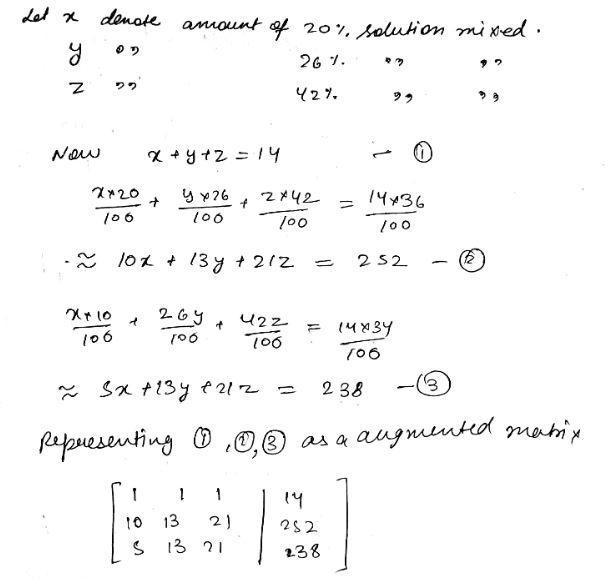 Let x denote amount of 20% solution mixed.
y " 26 %. " "
z " 42 %. " "
Now x + y + z = 14 - ①
x*20/100 + y*26/100 + z*42/100 = 14*36/100
≈ 10x + 13y + 21z = 252 - ②
x*10/100 + 26y/100 + 42z/100 = 14*34/100
≈ 5x + 13y + 21z = 238 - ③
Representing ①, ②, ③ as a augmented matrix
[ 1 1 1 | 14
10 13 21 | 252
5 13 21 | 238 ]